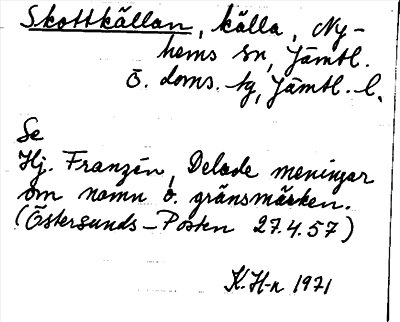 Skottkällan, källa, Ny-
hems sn, Jämtl.
ö. doms. tg, Jämtl. l.
Se
Hj. Franzén, Delade meningar
om namn o. gränsmärken.
(Östersunds-Posten 27.4.57)
K. H-n 1971